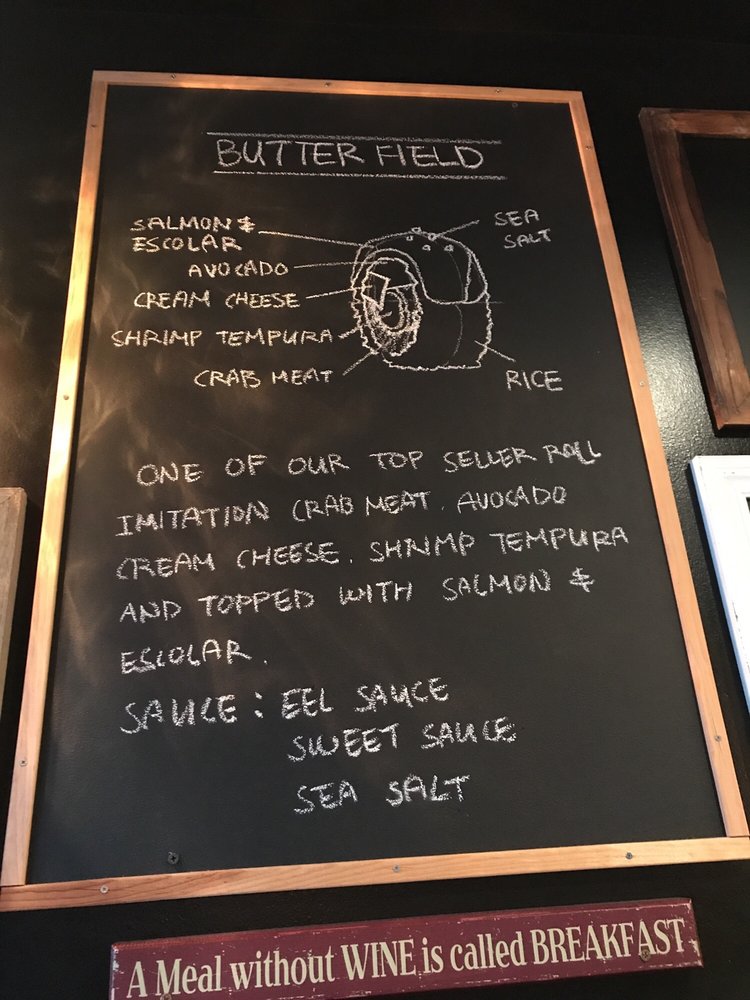 BUTTER FIELD
SALMON &
ESCOLAR
SEA
SALT
AVOCADO
CREAM CHEESE
SHRIMP TEMPURA
CRAB MEAT
RICE
ONE OF OUR TOP SELLER ROLL
IMITATION CRAB MEAT. AVOCADO
CREAM CHEESE. SHRIMP TEMPURA
AND TOPPED WITH SALMON &
ESCOLAR.
SAUCE : EEL SAUCE
SWEET SAUCE
SEA SALT
A Meal without WINE is called BREAKFAST